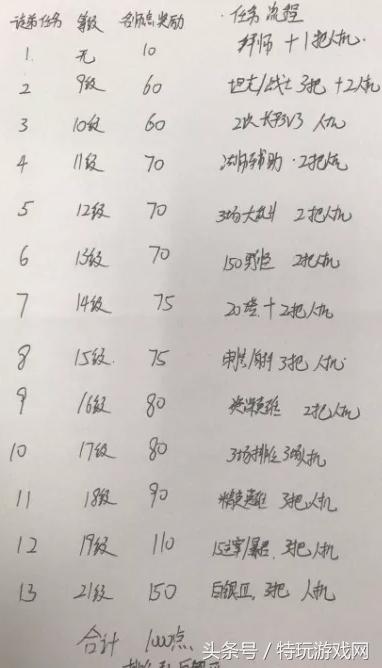 徒弟任务 等级 名师点奖励 任务流程
1. 无 10 拜师 +1把人机
2 9级 60 坦克/战士 3把 +2人机
3 10级 60 2次长平3V3 人机
4 11级 70 法师辅助·2把人机
5 12级 70 3场大乱斗 2把人机
6 13级 70 150野怪 2把人机
7 14级 75 20塔+2把人机
8 15级. 75 刺客/射手3把 人机·
9 16级 80 英雄 2把人机
10 17级 80 3场排位 3场人机
11 18级 90 3把人机
12 19级 110 15主宰/暴君.3把人机
13 21级 150 白银III,3把 人机
合计 1000点
头条号/特玩游戏网